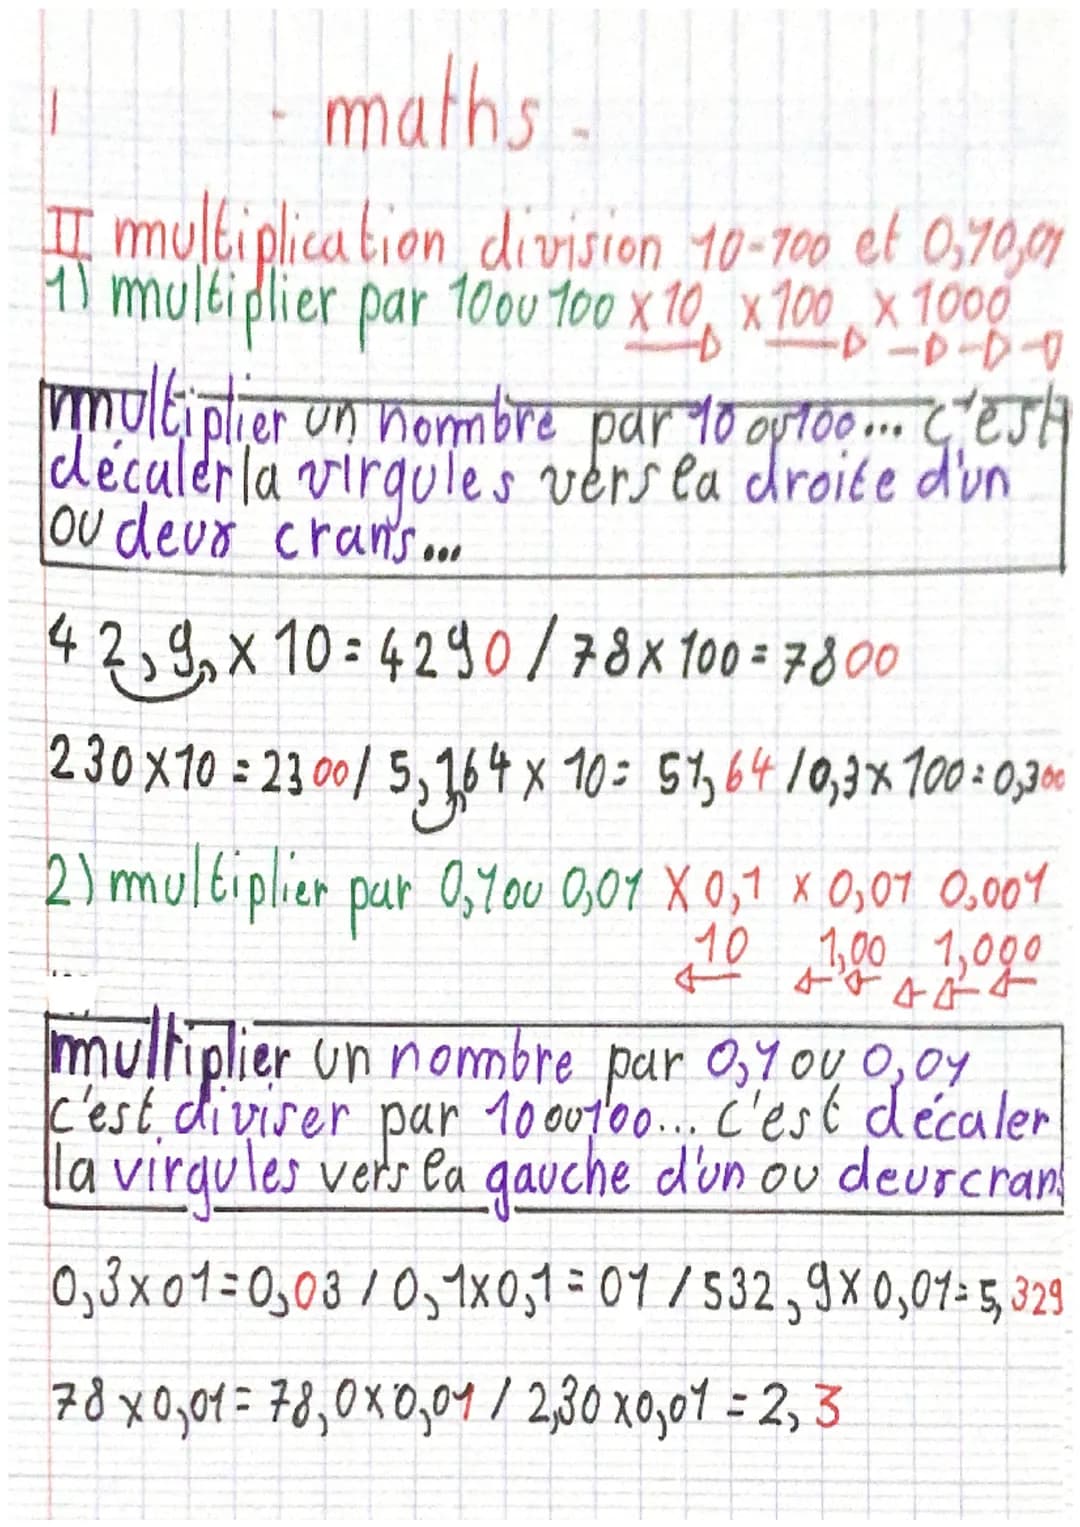 - maths -
II multiplication division 10-100 et 0,10,01
1) multiplier par 10 ou 100 x 10 x 100 x 1000
multiplier un nombre par 10 ou 100... c'est
décaler la virgules vers la droite d'un
ou deux crans...
42,9, x 10 = 4290 / 78 x 100 = 7800
230 x 10 = 2300 / 5,164 x 10 = 51,64 / 0,3 x 100 = 0,300
2) multiplier par 0,1 ou 0,01 x 0,1 x 0,01 0,001
10 1,00 1,000
...
multiplier un nombre par 0,1 ou 0,01
c'est diviser par 10 ou 100... c'est décaler
la virgules vers la gauche d'un ou deux crans
0,3 x 01 = 0,03 / 0,1 x 0,1 = 01 / 532,9 x 0,01 = 5,329
78 x 0,01 = 78,0 x 0,01 / 2,30 x 0,01 = 2,3